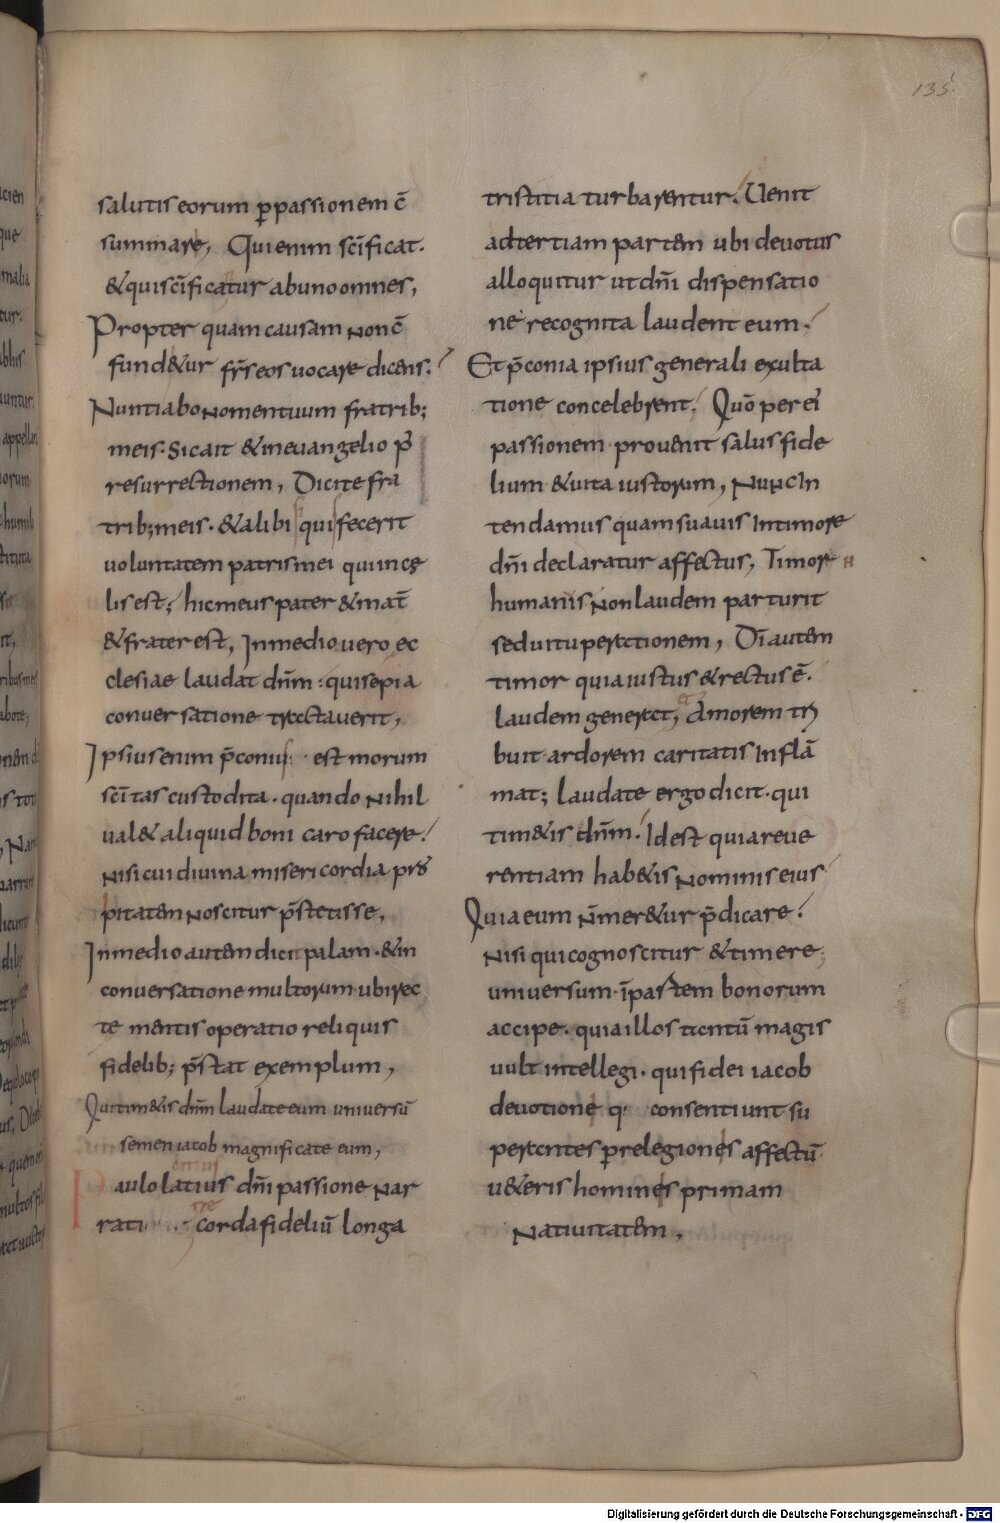 135
salutis eorum p̱ passionem c̄
summare, Qui enim scīficat.
& qui scīficatur ab uno omnes,
Propter quam causam non c̄
fund&ur fr̄s eos uocare dicens.
Nuntiabo nomen tuum fratrib;
meis. Sic ait & in euangelio p̄
resurrectionem, Dicite fra
trib; meis. & alibi qui fecerit
uoluntatem patris mei qui in cę
lis est; hic meus pater & mat̄
& frater est, In medio uero ec
clesiae laudat dn̄m: qui se pia
conuersatione tractauerit,
Ipsius enim p̄coniu est morum
scītas custodita. quando nihil
ual& aliquid boni caro facere.
Nisi cui diuina misericordia pros
pitatem noscitur p̄stetisse,
In medio autem dicit palam. & in
conuersatione multorum ubi rec
te mentis operatio reliquis
fidelib; p̄stat exemplum,
Qui tim&is dn̄m laudate eum uniuersū
semen iacob magnificate eum,
Paulo latius dn̄i passione nar
rati corda fideliū longa
tristitia turbarentur. Uenit
ad tertiam partem ubi deuotus
alloquitur ut dn̄i dispensatio
ne recognita laudent eum.
Et p̄conia ipsius generali exulta
tione concelebrent. Quō per ei
passionem prouenit salus fide
lium & uita iustorum, Nunc in
tendamus quam suauis in timore
dn̄i declaratur affectus, Timor
humanis non laudem parturit
sed uituperationem, Dī autem
timor quia iustus & rectus ē.
laudem generat, et Amorem tri
buit ardorem caritatis inflā
mat; laudate ergo dicit. qui
tim&is dn̄m. Id est quia reue
rentiam hab&is nominis eius
Quia eum n̄ mer&ur p̄dicare.
Nisi qui cognoscitur & timere;
uniuersum īpastem bonorum
accipe. quia illos tantū magis
uult intellegi. qui fidei iacob
deuotione q consentiunt su
perantes p̱ relegiones affectū
u&eris hominis primam
natiuitatem.
Digitalisierung gefördert durch die Deutsche Forschungsgemeinschaft - DFG